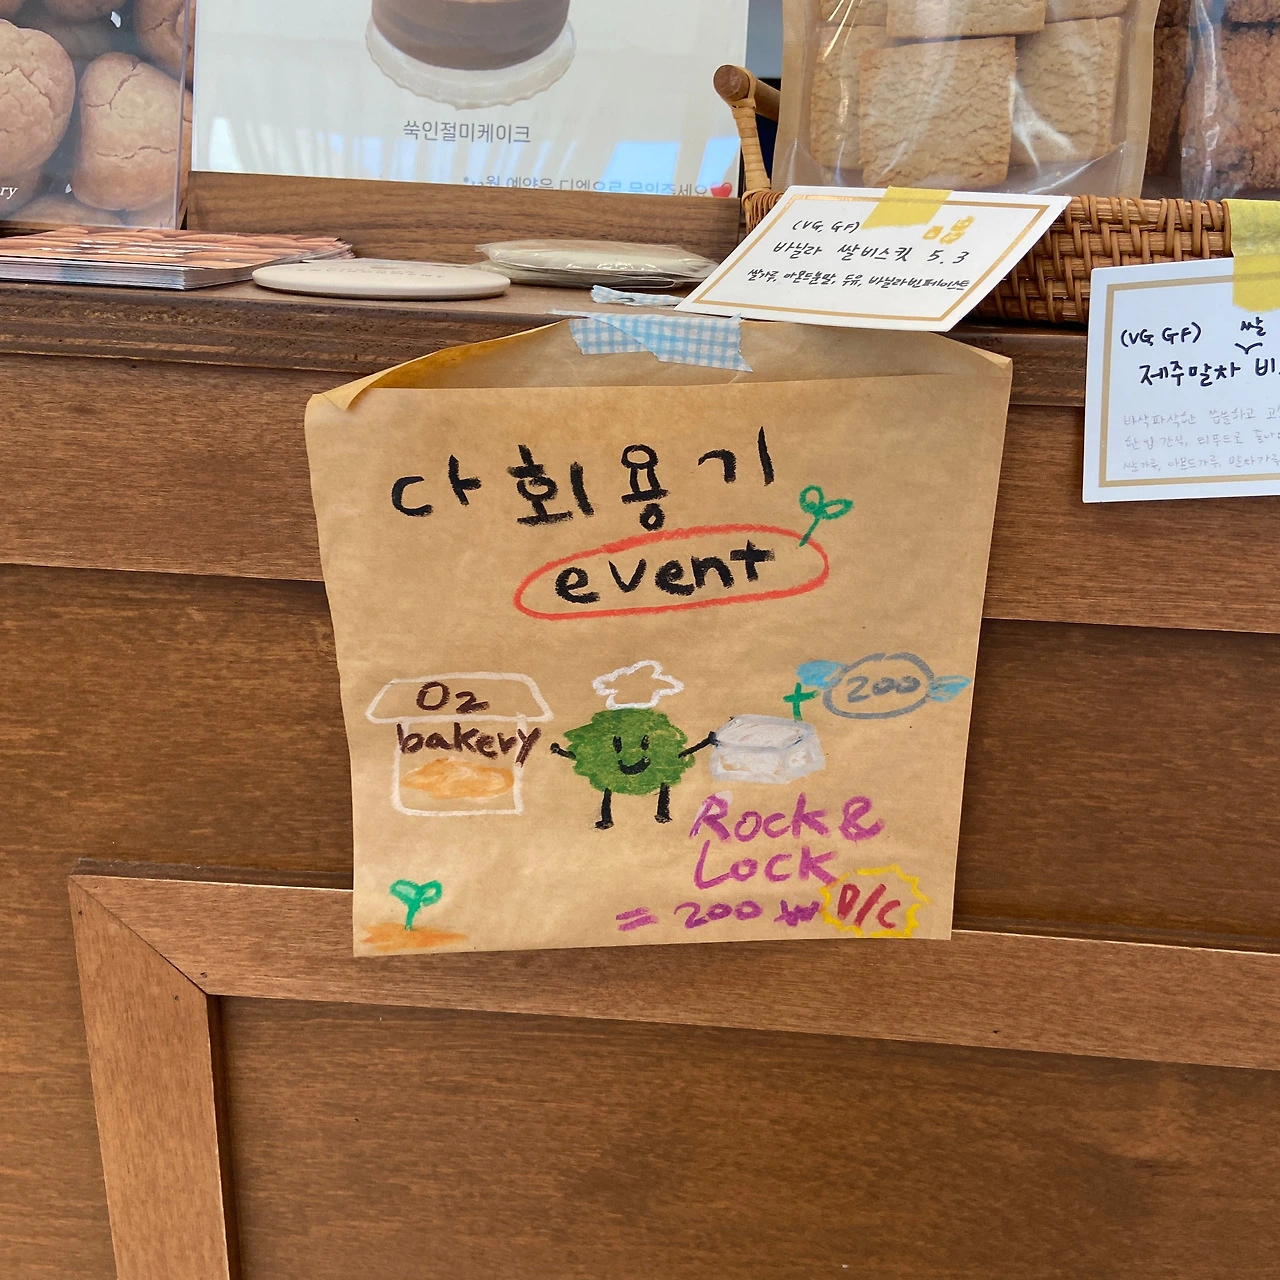 쑥인절미케이크
월 예약은 디엠으로 문의주세요
ry
(VG, GF)
바닐라 쌀비스킷 5.3
쌀가루, 아몬드분말, 두유, 바닐라빈페이스트
(VG, GF) 쌀
제주말차 비
바삭파삭한 씁쓸하고
한 입 간식, 티푸드로
쌀가루, 아몬드가루, 말차가루
다회용기
event
O2
bakery
+ 200
Rock &
Lock
= 200 ₩ D/C